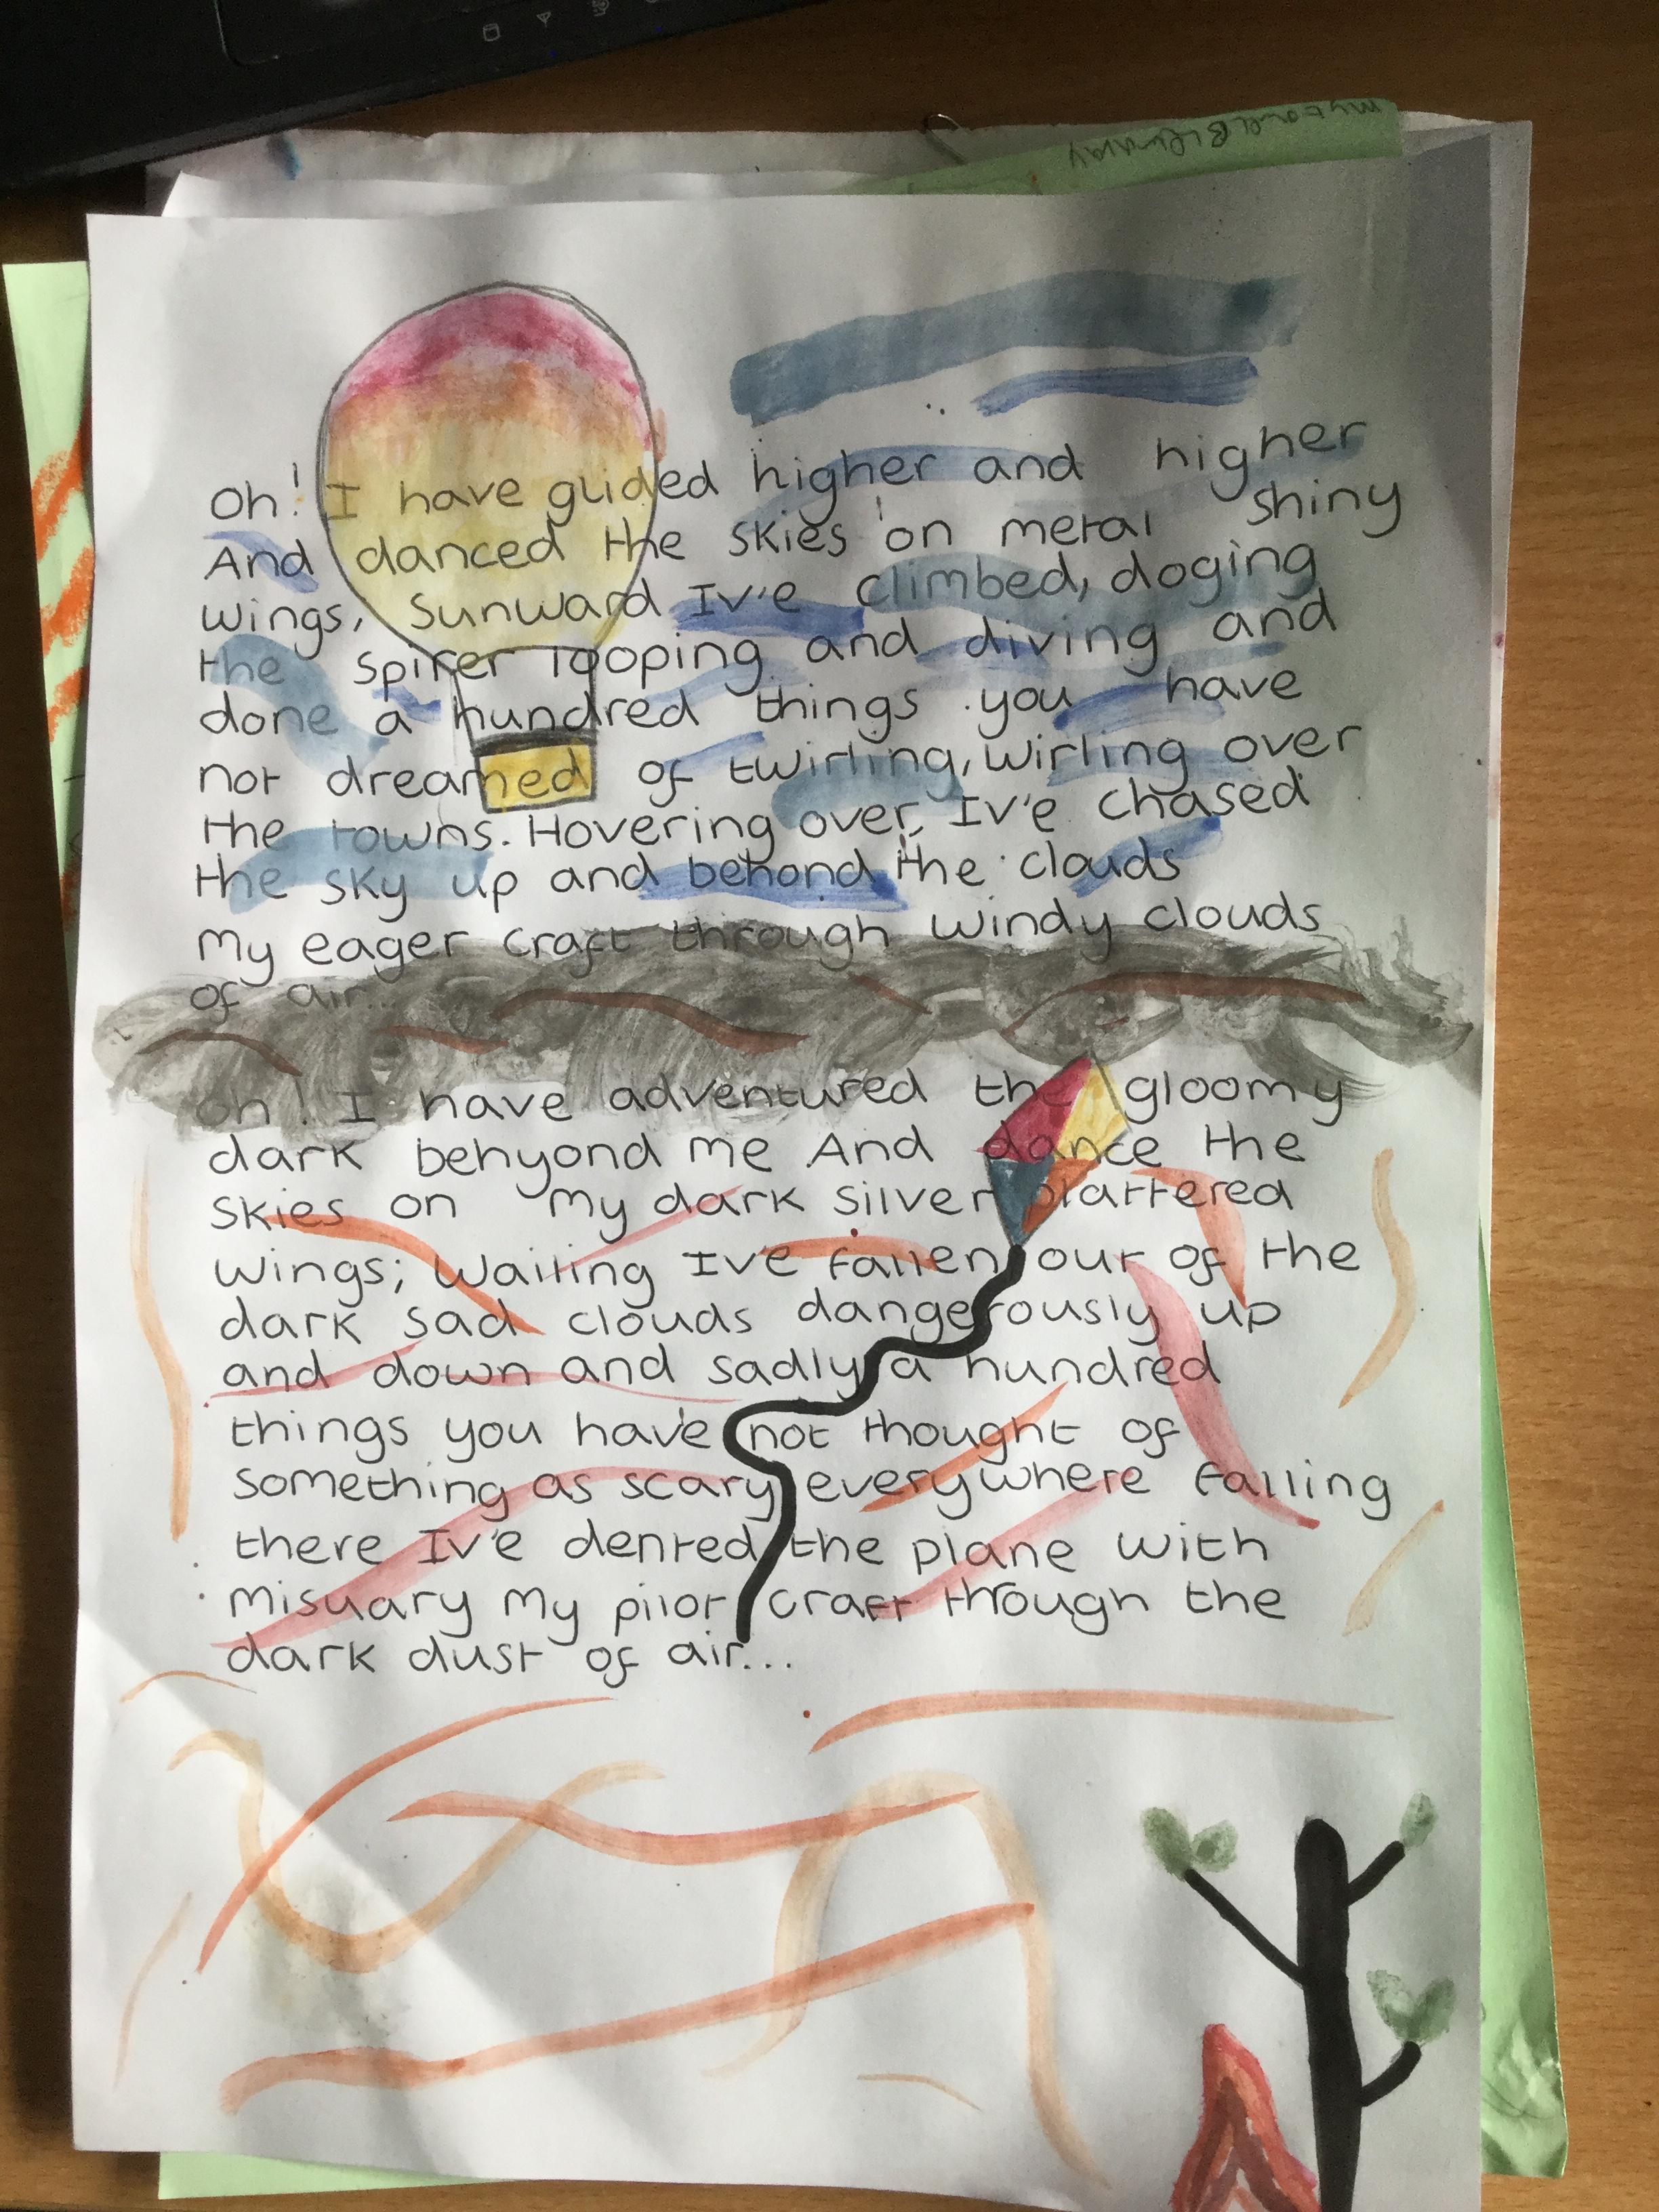 my Earel Birthday
Oh! I have glided higher and higher
And danced the skies on metal shiny
wings, Sunward Iv'e climbed, doging
the spirer looping and diving and
done a hundred things you have
not dreamed of twirling, wirling over
the towns. Hovering over, Iv'e chased
the sky up and behond the clouds
My eager craft through windy clouds
of air...
Oh! I have adventured the gloomy
dark behyond me And dance the
skies on my dark silver plattered
wings; Wailing Iv'e fallen out of the
dark sad clouds dangerously up
and down and sadly a hundred
things you have not thought of
something as scary everywhere falling
there Iv'e dented the plane with
misuary My pilot craft through the
dark dust of air...